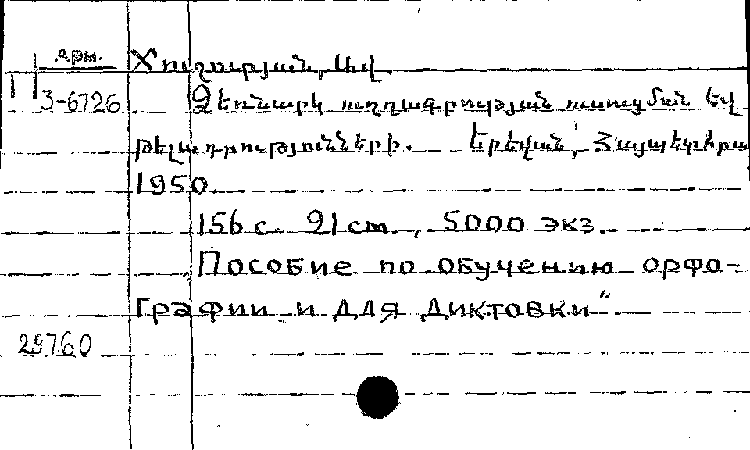 арм.
Խուդության, Ավ
3-6726 Ձեռնարկ ուղղագրության ուսուցման եվ
թելադրությունների. Երեվան, Հայպետհրատ
1950
156 с. 21 cm., 5000 экз.
Пособие по обучению орфо-
графии и для диктовки"
29760